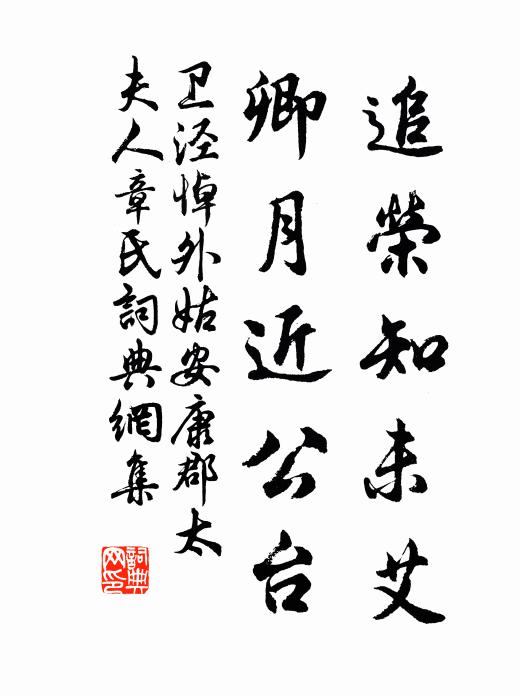 追榮知未艾
卿月近公台
卫泾悼外姑安康郡太
夫人章氏詞典網集
詞典网印